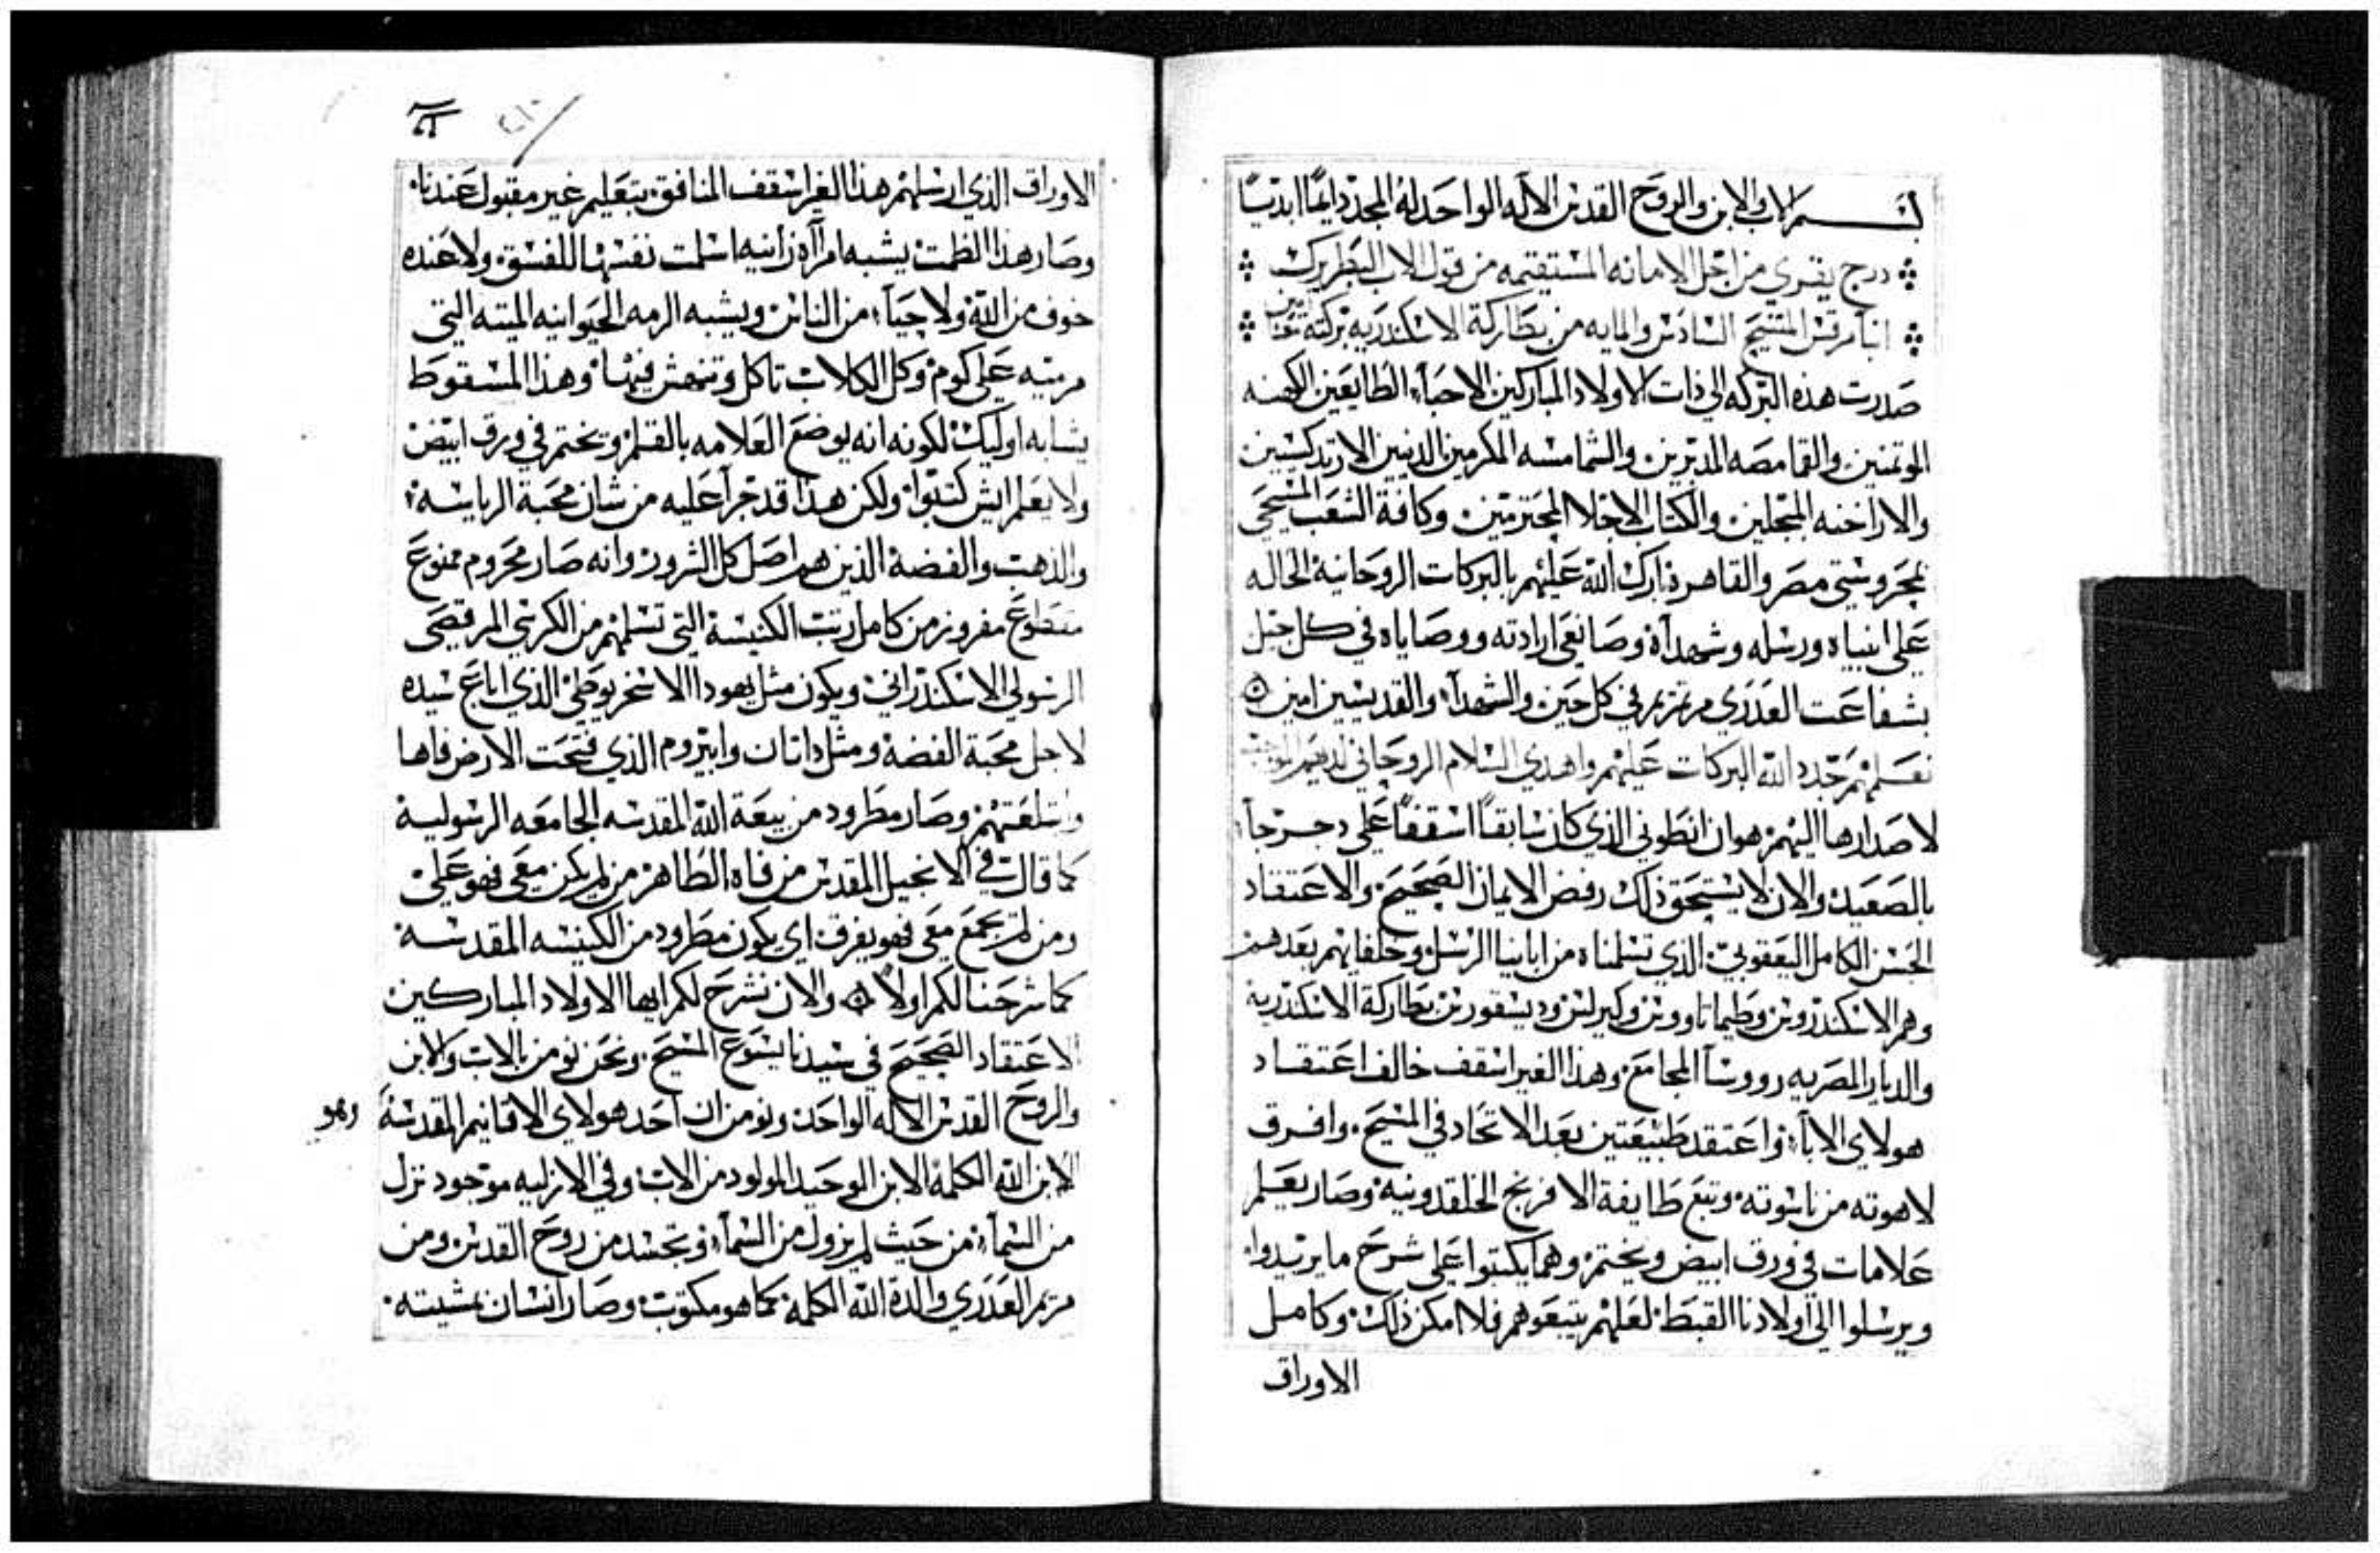 بسم الاب والابن والروح القدس الاله الواحد له المجد دايمًا ابديًا
درج يقري من اجل الامانه المستقيمه من قول الاب البطريرك
انبا مرقس المسيح السادس والمايه من بطاركة الاسكندريه بركته تعنا امين
صدرت هذه البركه الي ذات الاولاد المباركين الاحباء الطايعين الكهنه
الموتمنين والقمامصه المدبرين والشمامسه المكرمين الدنيين الارتدكسيين
والاراخنه المبجلين والكتاب الاجلا المحترمين وكافة الشعب المسيحي
بمحروستي مصر والقاهره بارك الله عليهم بالبركات الروحانية الحاله
علي انبياه ورسله وشهدآه وصانعي ارادته ووصاياه في كل جيل
بشفاعت العدري مرتمريم في كل حين والشهدآء والقديسين امين
نعلمهم جدد الله البركات عليهم واهدي السلام الروحاني لديهم
لاصدارها اليهم هو ان انطوني الذي كان سابقاً اسقفاً علي دجرجا
بالصعيد والان لا يستحق ذلك رفض الايمان الصحيح والاعتقاد
الحسن الكامل اليعقوبي الذي تسلمناه من اباينا الرسل وخلفايهم بعدهم
وهم الاسكندروس وطيماتاووس وكيرلس وديسقورس بطاركة الاسكندرية
والديار المصريه رووسآ المجامع وهذا الغير اسقف خالف اعتقاد
هولاي الابآء واعتقد طبيعتين بعد الاتحاد في المسيح وافرق
لاهوته من ناسوته وتبع طايفة الافرنج الخلقدونية وصار يعلم
علامات في ورق ابيض ويختم وهما يكتبوا علي شرح ما يريدوا
ويرسلوا الي اولادنا القبط لعلهم يتبعوهم فلا امكن ذلك وكامل
الاوراق
الاوراق الذي ارسلهم هذا الغير اسقف المنافق بتعليم غير مقبول عندنا
وصار هذا الظمت يشبه امرآه زانيه اسلمت نفسها للفسق ولا عنده
خوف من الله ولا حيآء من الناس ويشبه الرمه الحيوانيه الميته التي
مرميه علي كوم وكل الكلاب تاكل وتنهش فيها وهذا المسقوط
يشابه اوليك لكونه انه يوضع العلامه بالقلم ويختم في ورق ابيض
ولا يعلم ايش كتبوا ولكن هذا قد جرآ عليه من شان محبة الرياسه
والذهب والفضة الذين هم اصل كل الشرور وانه صار محروم ممنوع
مقطوع مفروز من كامل رتب الكنيسة التي تسلمهم من الكرسي المرقصي
الرسولي الاسكندراني ويكون مثل يهودا الاسخريوطي الذي اباع سيده
لاجل محبة الفضة ومثل داتان وابيروم الذي فتحت الارض فاها
وابتلعتهم وصار مطرود من بيعة الله المقدسه الجامعه الرسولية
كما قال في الانجيل المقدس من فاه الطاهر من لم يكن معي فهو علي
ومن لم يجمع معي فهو يفرق اي يكون مطرود من الكنيسه المقدسة
كما شرحنا لكم اولاً والان نشرح لكم ايها الاولاد المباركين
الاعتقاد الصحيح في سيدنا يسوع المسيح ونحن نومن بالاب والابن
والروح القدس الاله الواحد ونومن ان احد هولاي الاقانيم المقدسة وهو
الابن الله الكلمة الابن الوحيد المولود من الاب وفي الازليه موجود نزل
من السمآء من حيث لم يزول من السمآء وتجسد من روح القدس ومن
مريم العدري والدة الله الكلمة كما هو مكتوب وصار انسان بمشيته